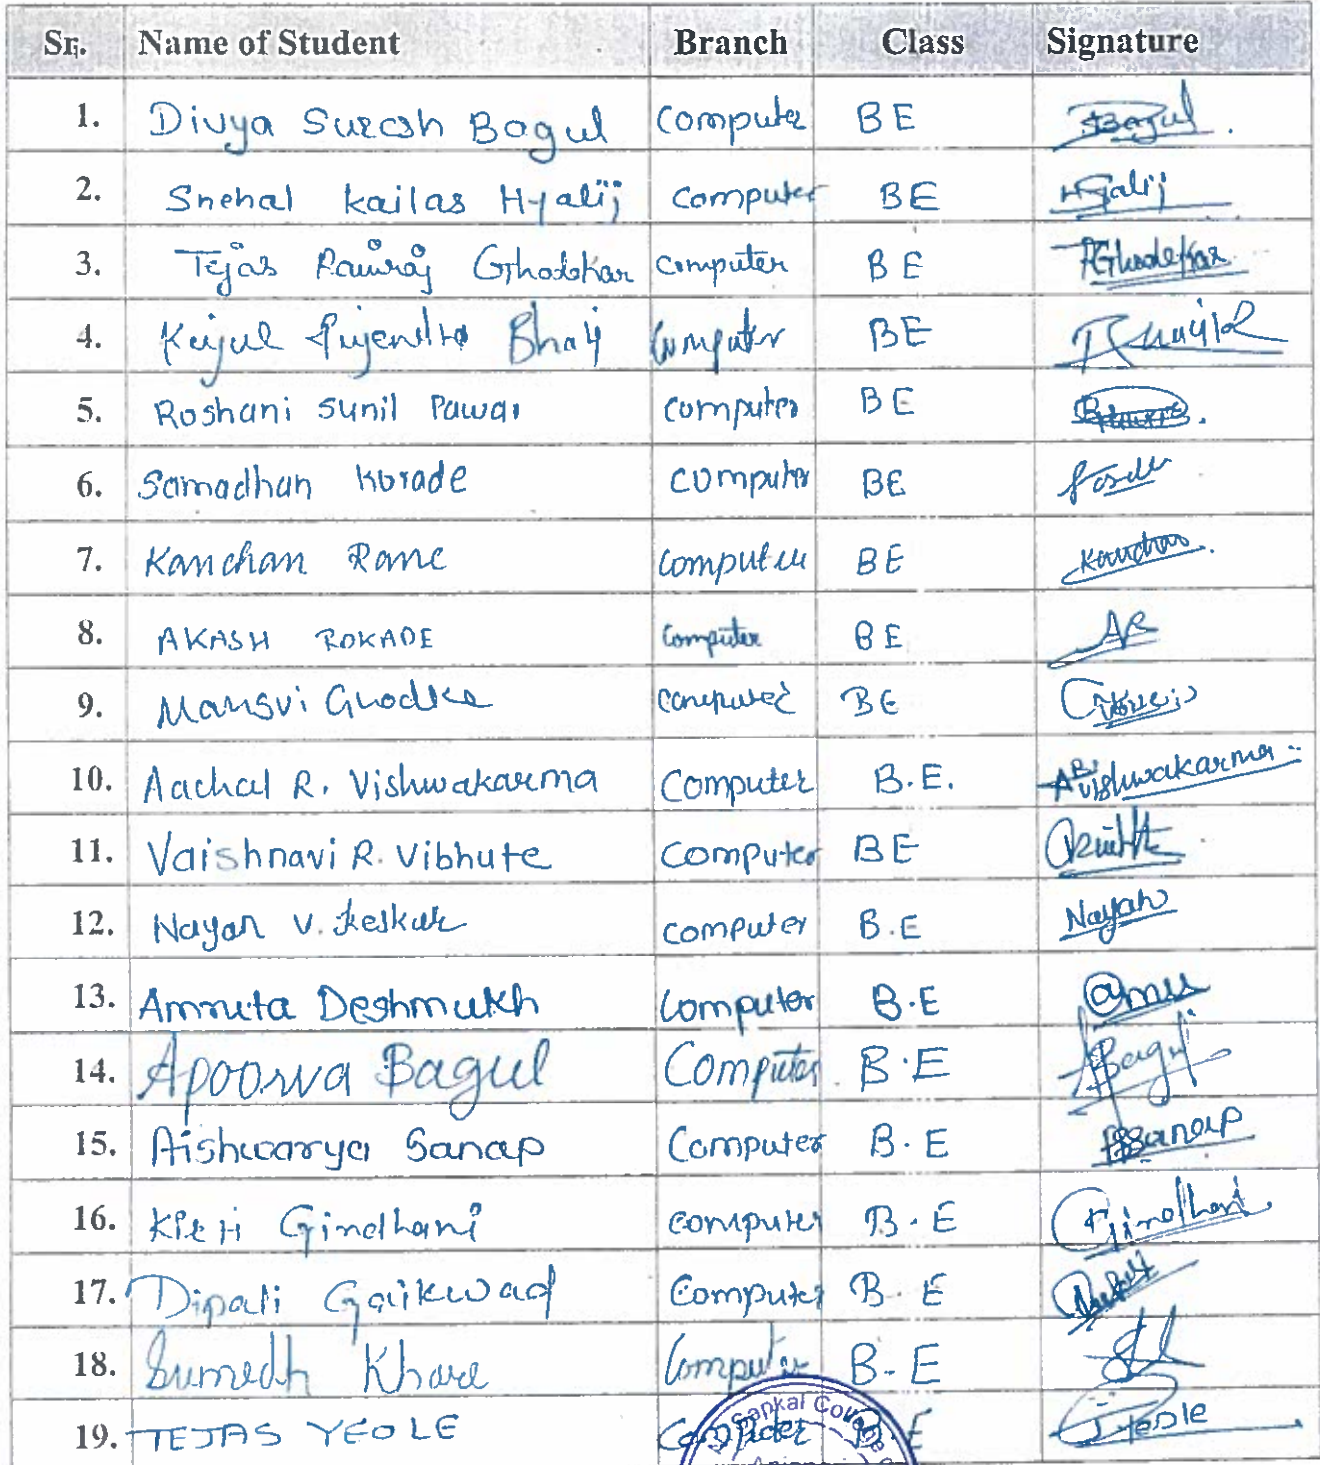 Sr. Name of Student Branch Class Signature
1. Divya Suresh Bagul Computer BE Bagul
2. Snehal Kailas Hyalij Computer BE Hyalij
3. Tejas Ramraj Computer BE Ghodekar
4. Kajul Bhaij Computer BE
5. Roshani Sunil Pawar Computer BE
6. Samadhan Korade Computer BE
7. Kanchan Rane Computer BE Kanchan
8. AKASH ROKADE Computer BE AR
9. Mansvi Ghodke Computer BE
10. Aachal R. Vishwakarma Computer B.E. A R. Vishwakarma
11. Vaishnavi R. Vibhute Computer BE
12. Nayan V. Keskar Computer B.E Nayan
13. Amruta Deshmukh Computer B.E Amu
14. Apoorva Bagul Computer B.E ABagul
15. Aishwarya Sanap Computer B.E Sanap
16. Kirti Gindhani Computer B.E Gindhani
17. Dipali Gaikwad Computer B.E
18. Sumedh Khare Computer B-E
19. TEJAS YEOLE Computer B.E Yeole
Sapkal College